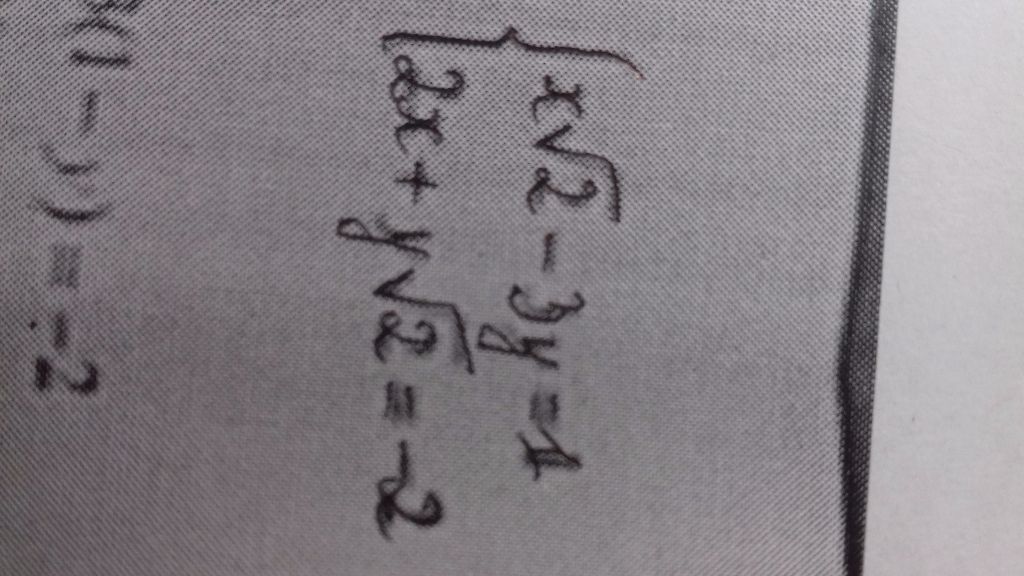 x√2 - 3y = 1
2x + y√2 = -2
) = -2